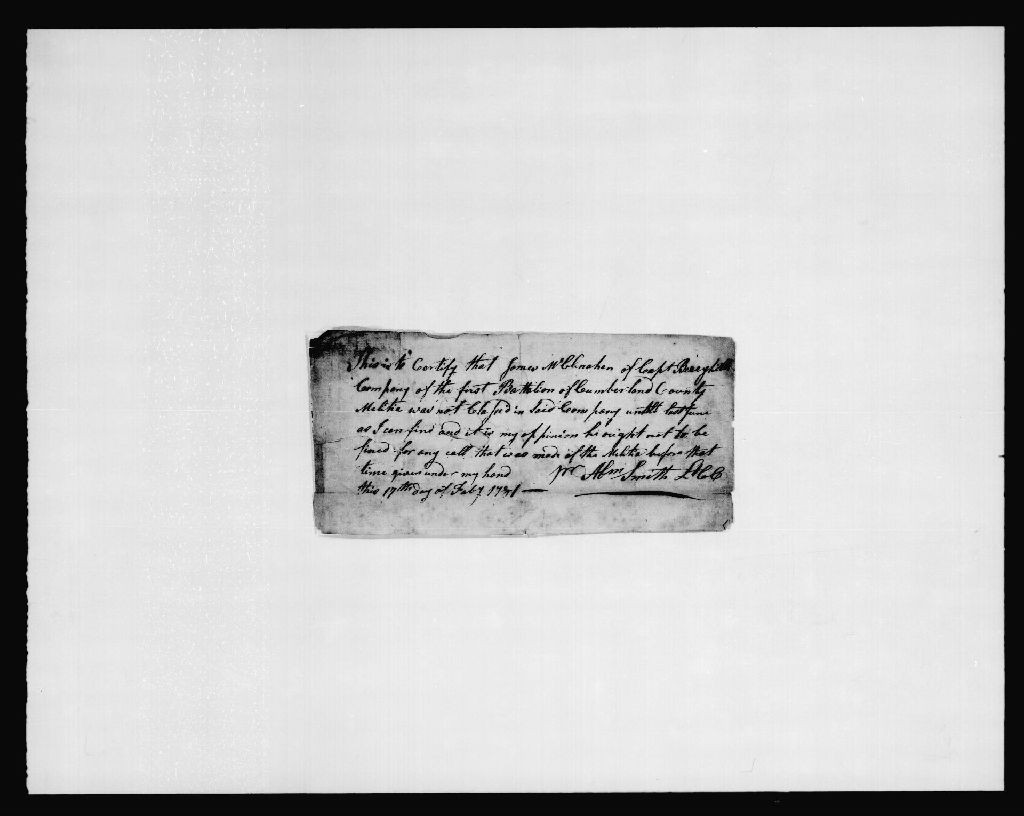 This is to Certify that James McClenahen of Capt
Company of the first Battelion of Cumberland County
Melitia was not Classed in Said Company untill last June
as I can find and it is my oppinion he ought not to be
fined for any call that was made of the Melitia before that
time given under my hand pr Abm Smith
this 17th day of Feby 1781